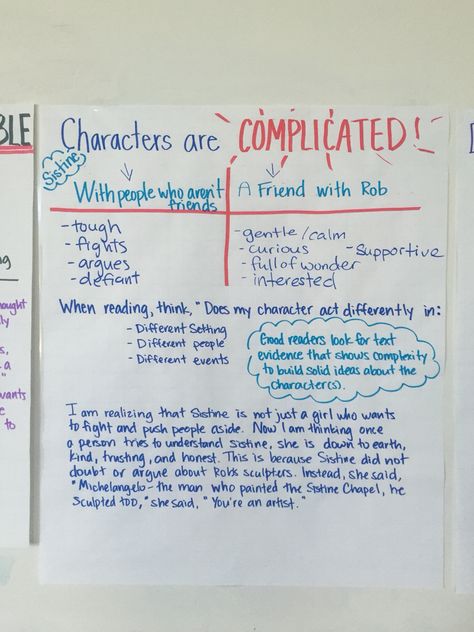 BLE
Characters are COMPLICATED!
Sistine
With people who aren't friends
A Friend with Rob
- tough
- fights
- argues
- defiant
- gentle/calm
- curious
- supportive
- full of wonder
- interested
When reading, think, "Does my character act differently in:
- Different Setting
- Different people
- Different events
Good readers look for text
evidence that shows complexity
to build solid ideas about the
character(s).
I am realizing that Sistine is not just a girl who wants
to fight and push people aside. Now I am thinking once
a person tries to understand sistine, she is down to earth,
kind, trusting, and honest. This is because Sistine did not
doubt or argue about Rob's sculpters. Instead, she said,
"Michelangelo - the man who painted the Sistine Chapel, he
sculpted too," she said, "You're an artist."